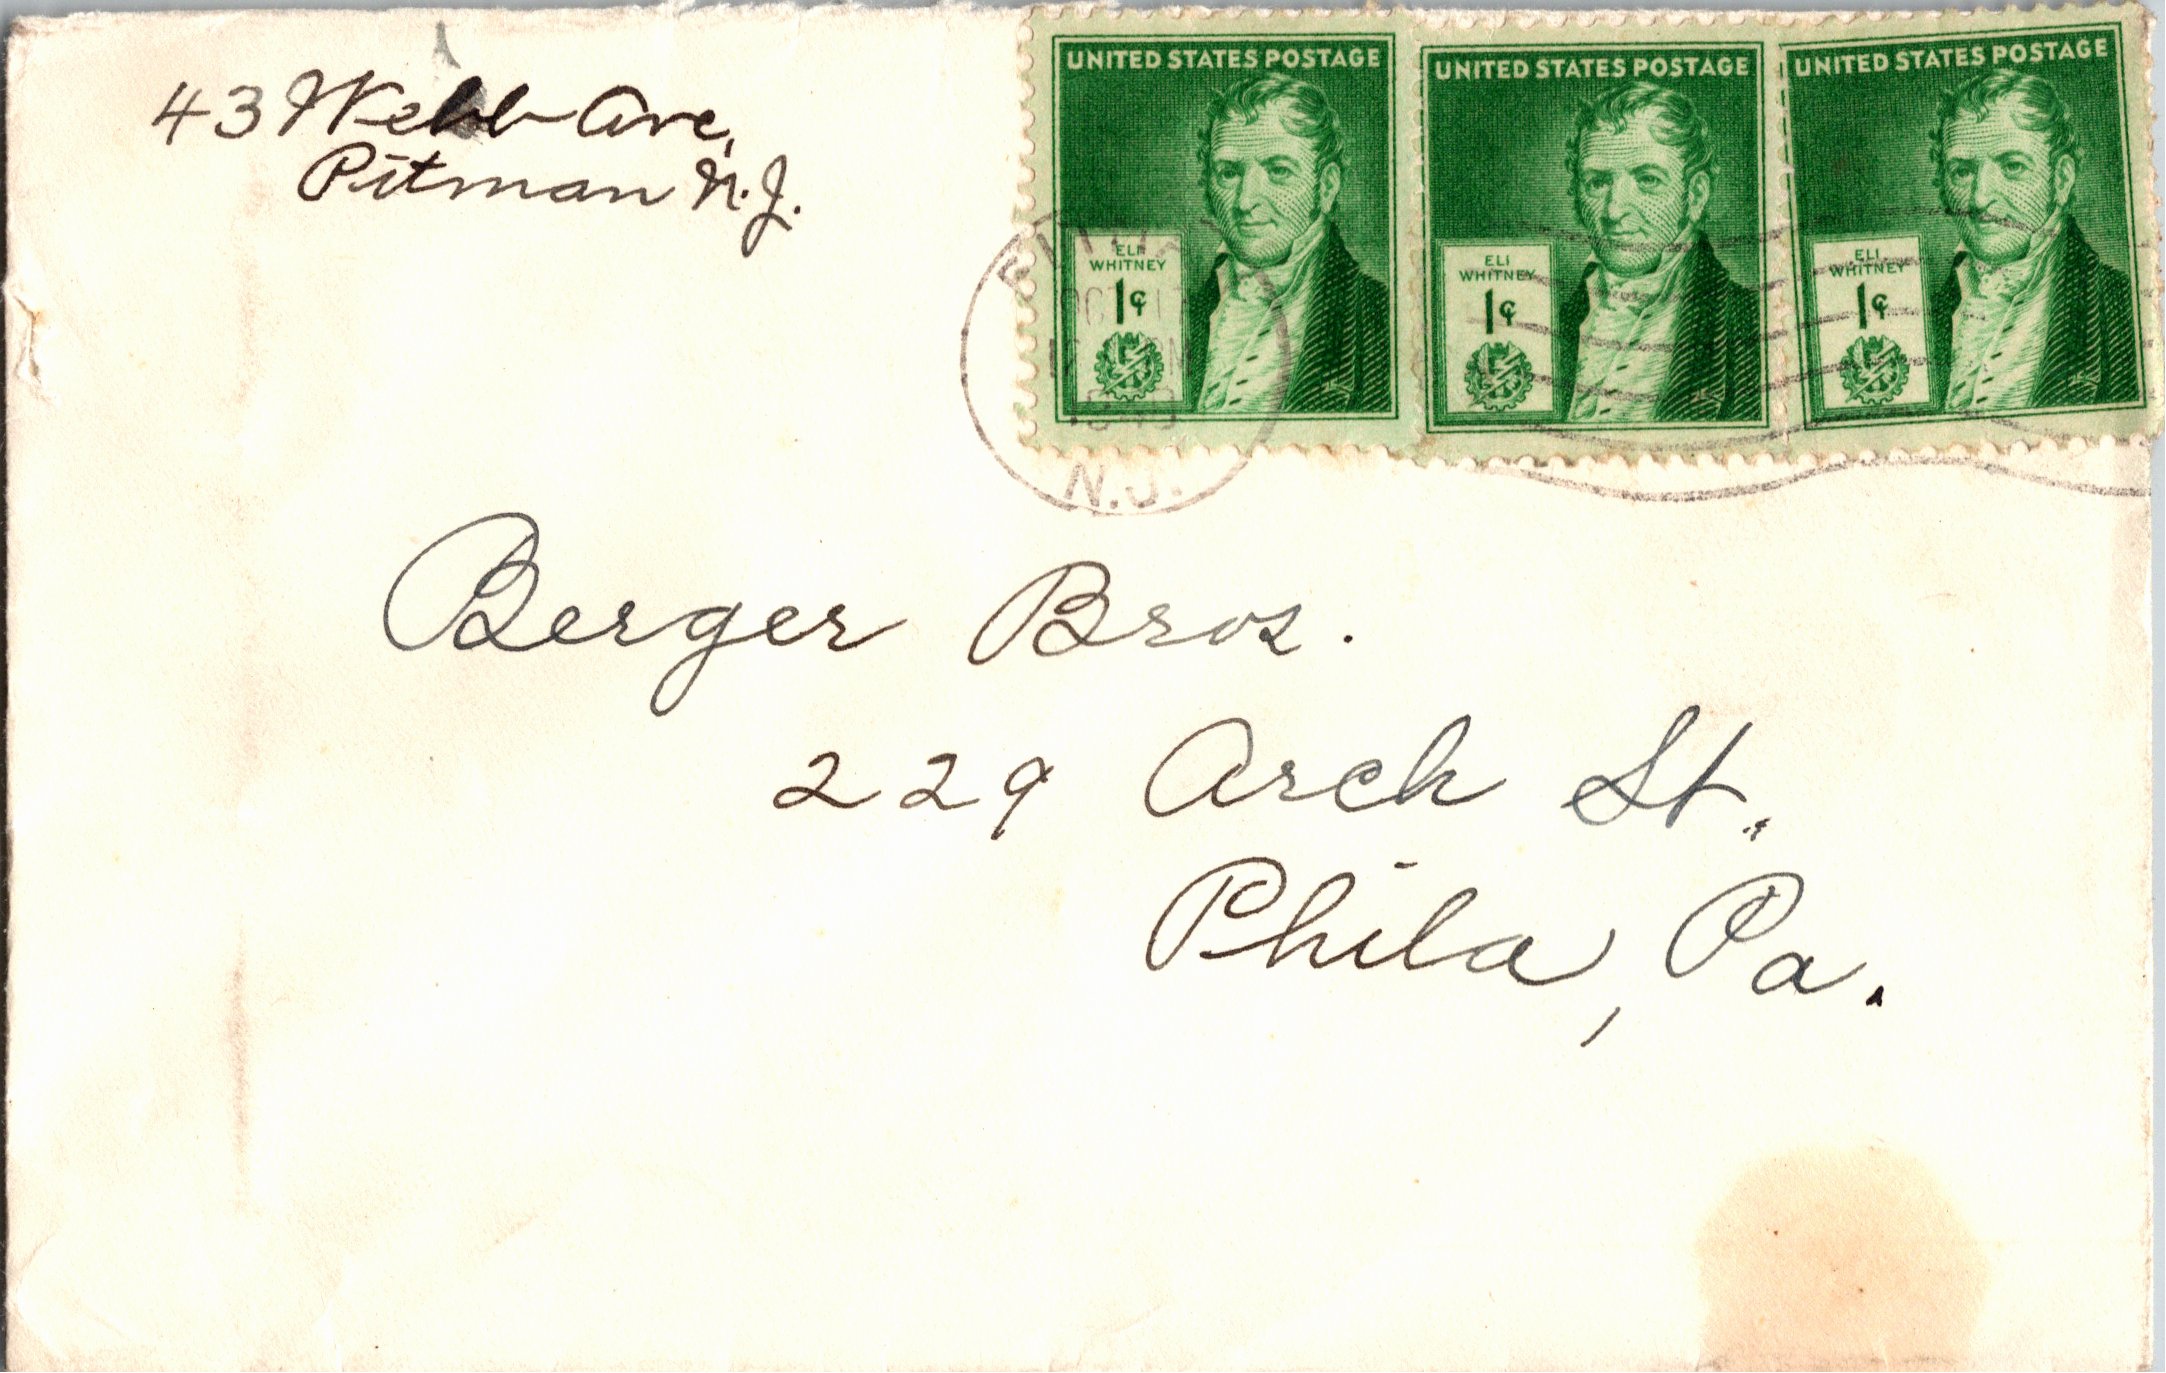 43 Webb Ave,
Pitman N.J.
UNITED STATES POSTAGE
ELI
WHITNEY
1¢
UNITED STATES POSTAGE
ELI
WHITNEY
1¢
UNITED STATES POSTAGE
ELI
WHITNEY
1¢
OCT 17
N.J.
Berger Bros.
229 Arch St.,
Phila, Pa.